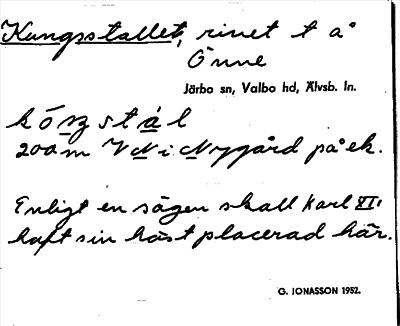 Kungsstallet, rinet t å
Önne
Järbo sn, Valbo hd, Älvsb. ln.
kóŋstál
200 m VNV i Nygård på ek.
Enligt en sägen skall Karl XI.
haft sin häst placerad här.
G. JONASSON 1952.